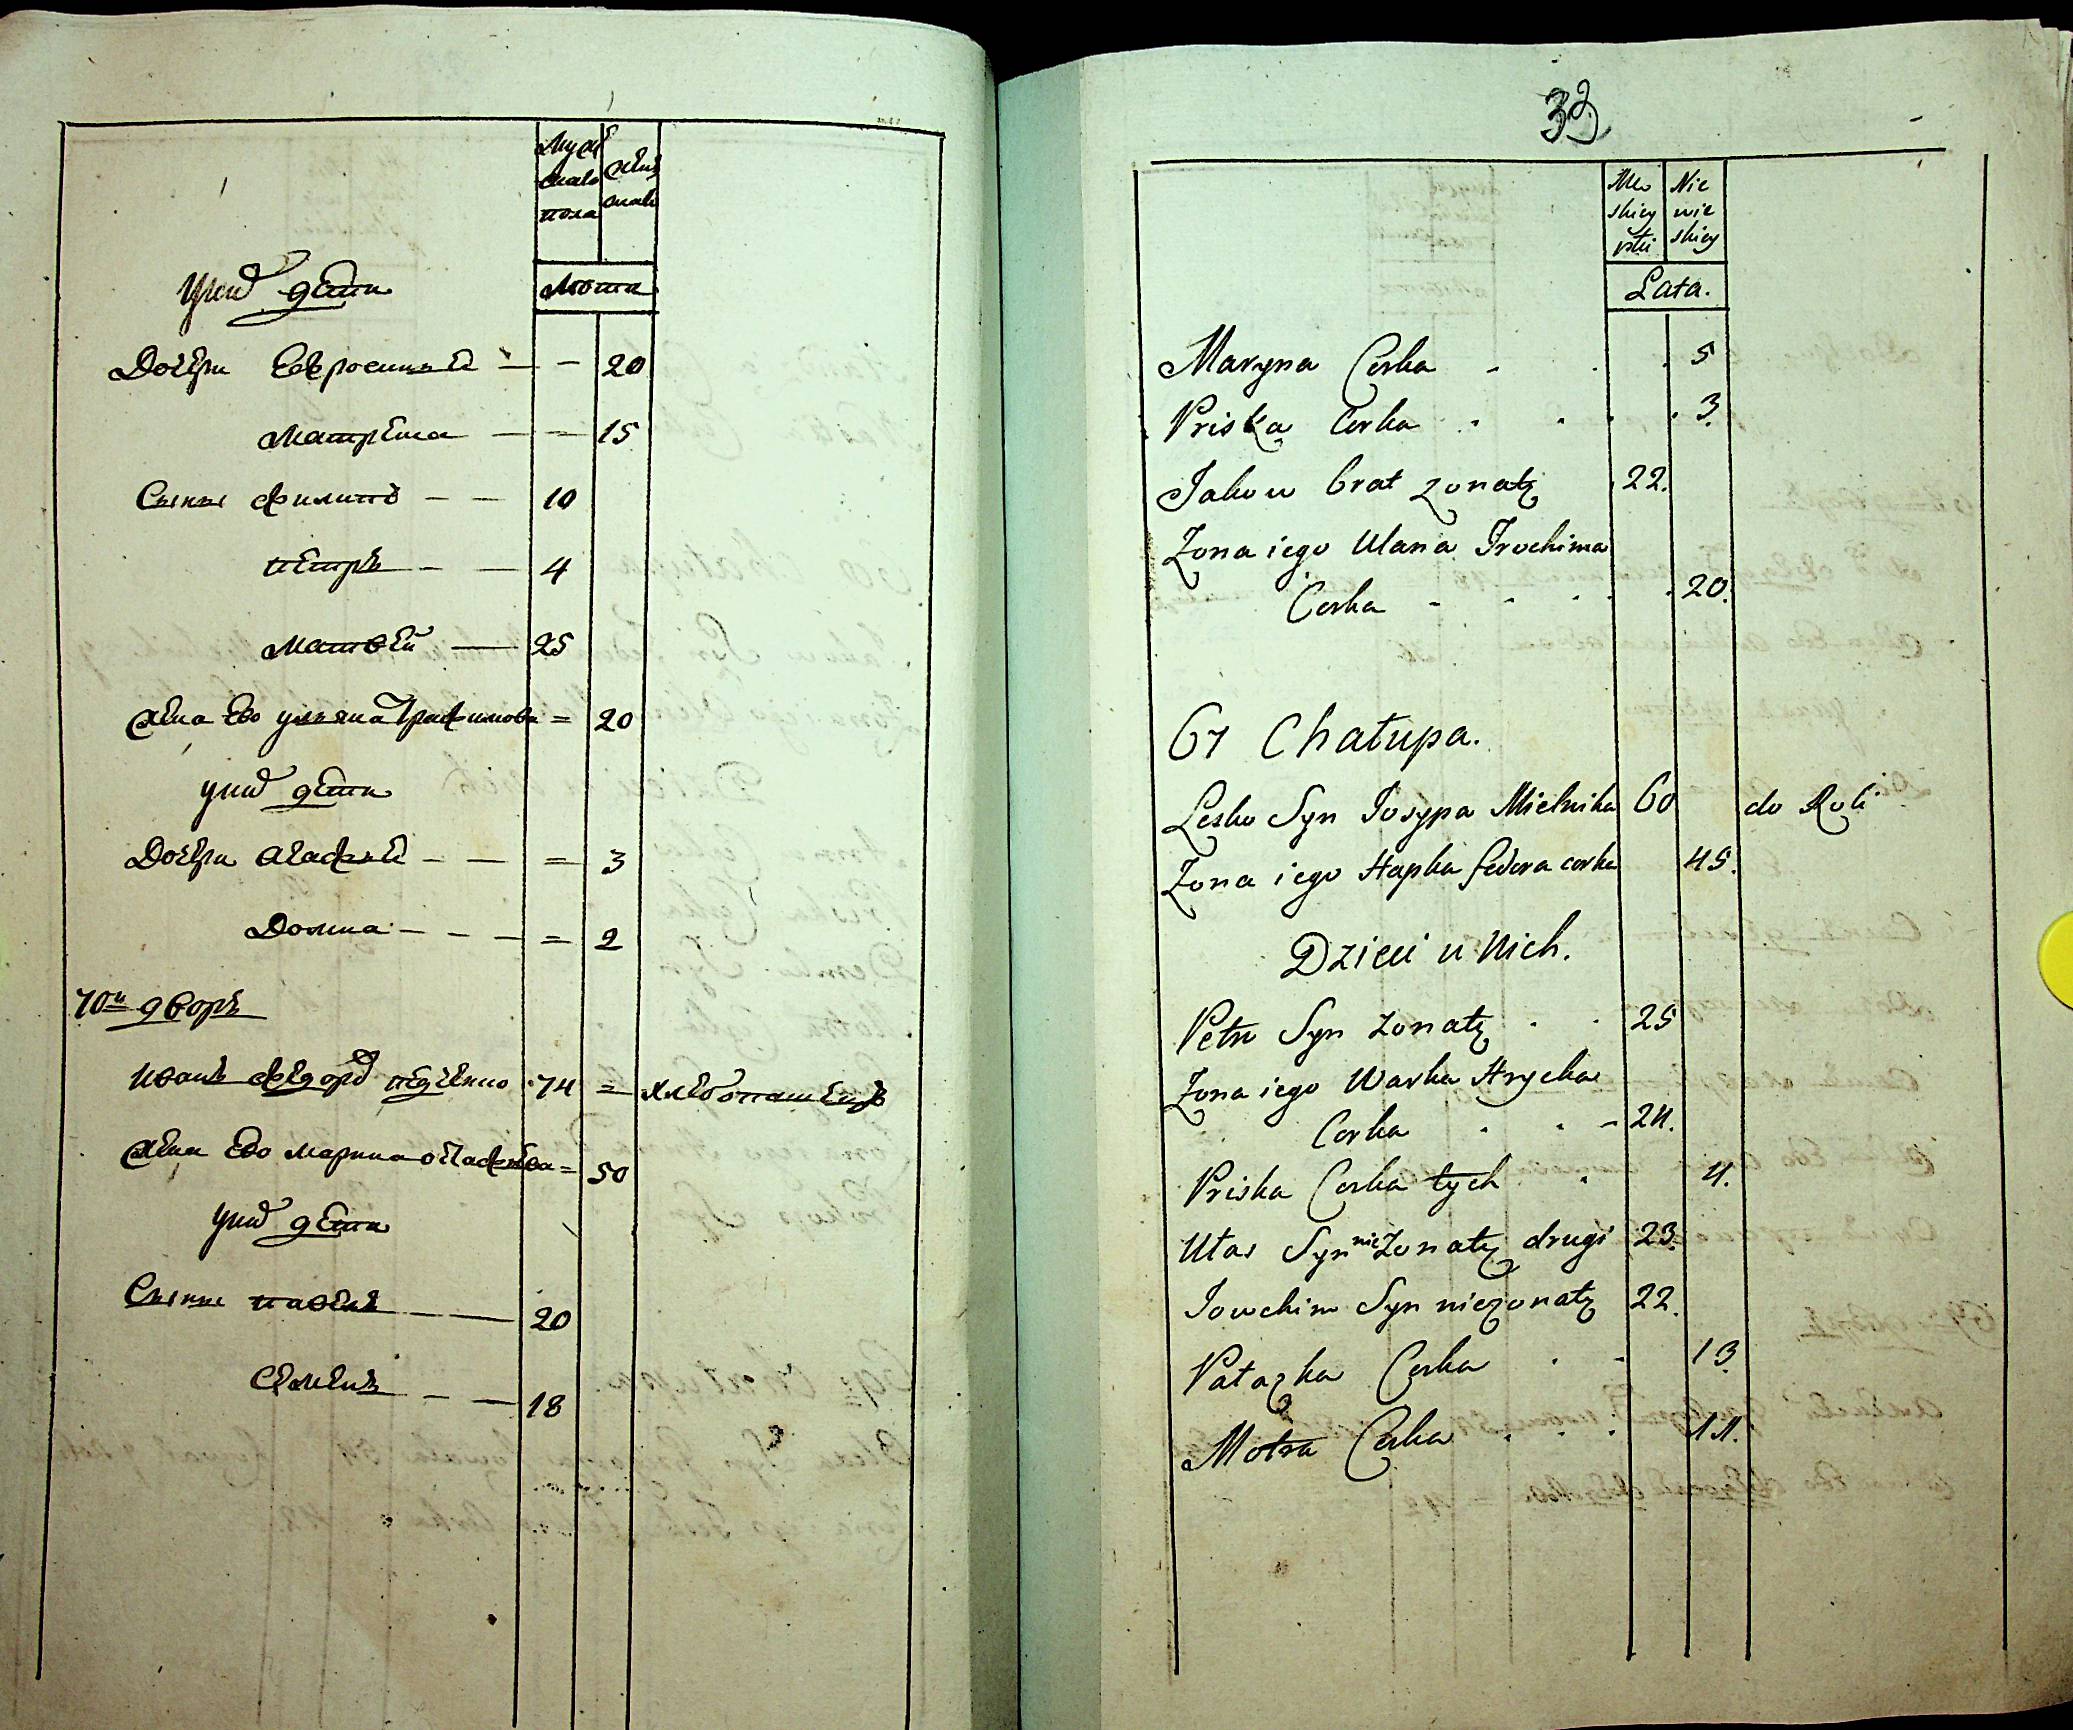 Муж
скаго
пола
Жен
скаг
Лѣта
у них дети
Дочери Евросиния — — 20
Матрена — — 15
Сыны Филипъ — — 10
Петръ — — 4
Матвей — 25
Жена Ево ульяна Трафимова = 20
у них дети
Дочери Агафия — — = 3
Домна — — — = 2
70й дворъ
Иванъ Федоров 74 = хлебопашецъ
Жена Ево Марина = 50
у них дети
Сыны Павелъ — 20
Семенъ — — 18
33
Mę
skiey
płci
Nie
wie
skiey
Lata.
Maryna Corka 5
Priska Corka 3
Jakow brat zonaty 22.
Zona iego Ulana Trochima
Corka 20.
67 Chałupa.
Lesko Syn Josypa Mielnika 60 do Roli
Zona iego Hapka fedora corka 45.
Dzieci u Nich.
Petro Syn zonaty 25
Zona iego Warka Hrycka
Corka 24.
Priska Corka tych 4.
Ułas Syn nie Zonaty drugi 23.
Jowchim Syn niezonaty 22.
Patazka Corka 13
Motra Corka 11.